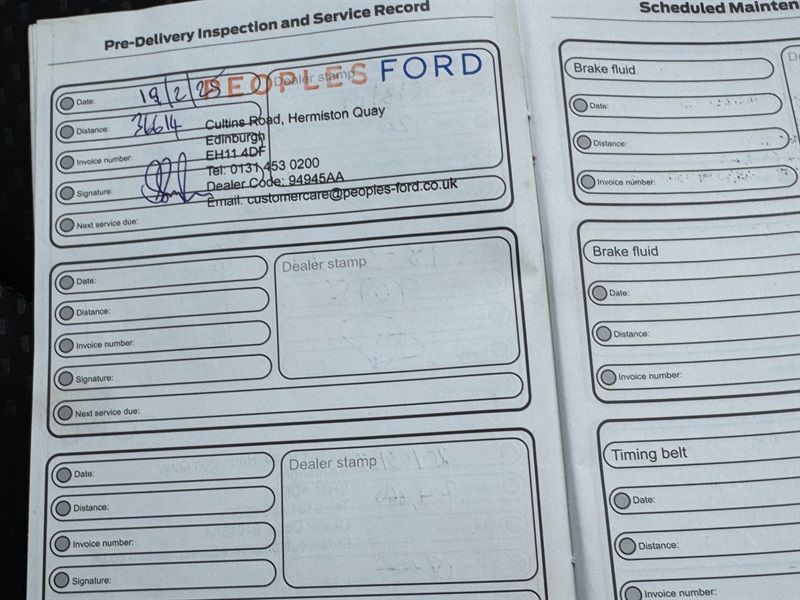 Pre-Delivery Inspection and Service Record
Date: 19/2/25
Dealer stamp
PEOPLES FORD
Distance: 36614
Cultins Road, Hermiston Quay
Edinburgh
Invoice number:
EH11 4DF
Tel: 0131 453 0200
Signature:
Dealer Code: 94945AA
Email: customercare@peoples-ford.co.uk
Next service due:
Date:
Dealer stamp
Distance:
Invoice number:
Signature:
Next service due:
Date:
Dealer stamp
Distance:
Invoice number:
Signature:
Scheduled Mainten
Brake fluid
Date:
Distance:
Invoice number:
Brake fluid
Date:
Distance:
Invoice number:
Timing belt
Date:
Distance:
Invoice number: